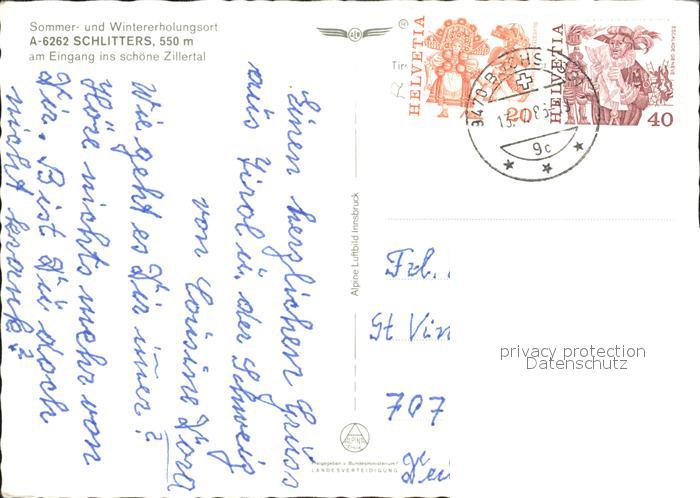 Sommer- und Wintererholungsort
A-6262 SCHLITTERS, 550 m
am Eingang ins schöne Zillertal
Einen herzlichen Gruss
aus Tirol u. der Schweiz
von Cousine Dora
Wie geht es Dir im̅er?
Höre nichts mehr von
Dir. Bist Du doch
nicht krank?
Alpine Luftbild Innsbruck
Tir
HELVETIA
20
HELVETIA
ESCALADE GENÈVE
40
9470 BUCHS
13.
9c
Frl.
St Vin
707
ALPINE
Freigegeben v. Bundesministerium f.
LANDESVERTEIDIGUNG
privacy protection
Datenschutz